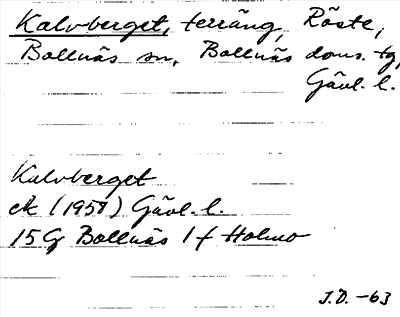 Kalvberget, terräng, Röste,
Bollnäs sn, Bollnäs doms. tg,
Gävl. l.
Kalvberget
ek (1958) Gävl. l.
15G Bollnäs 1 f Holmo
J.D. -63